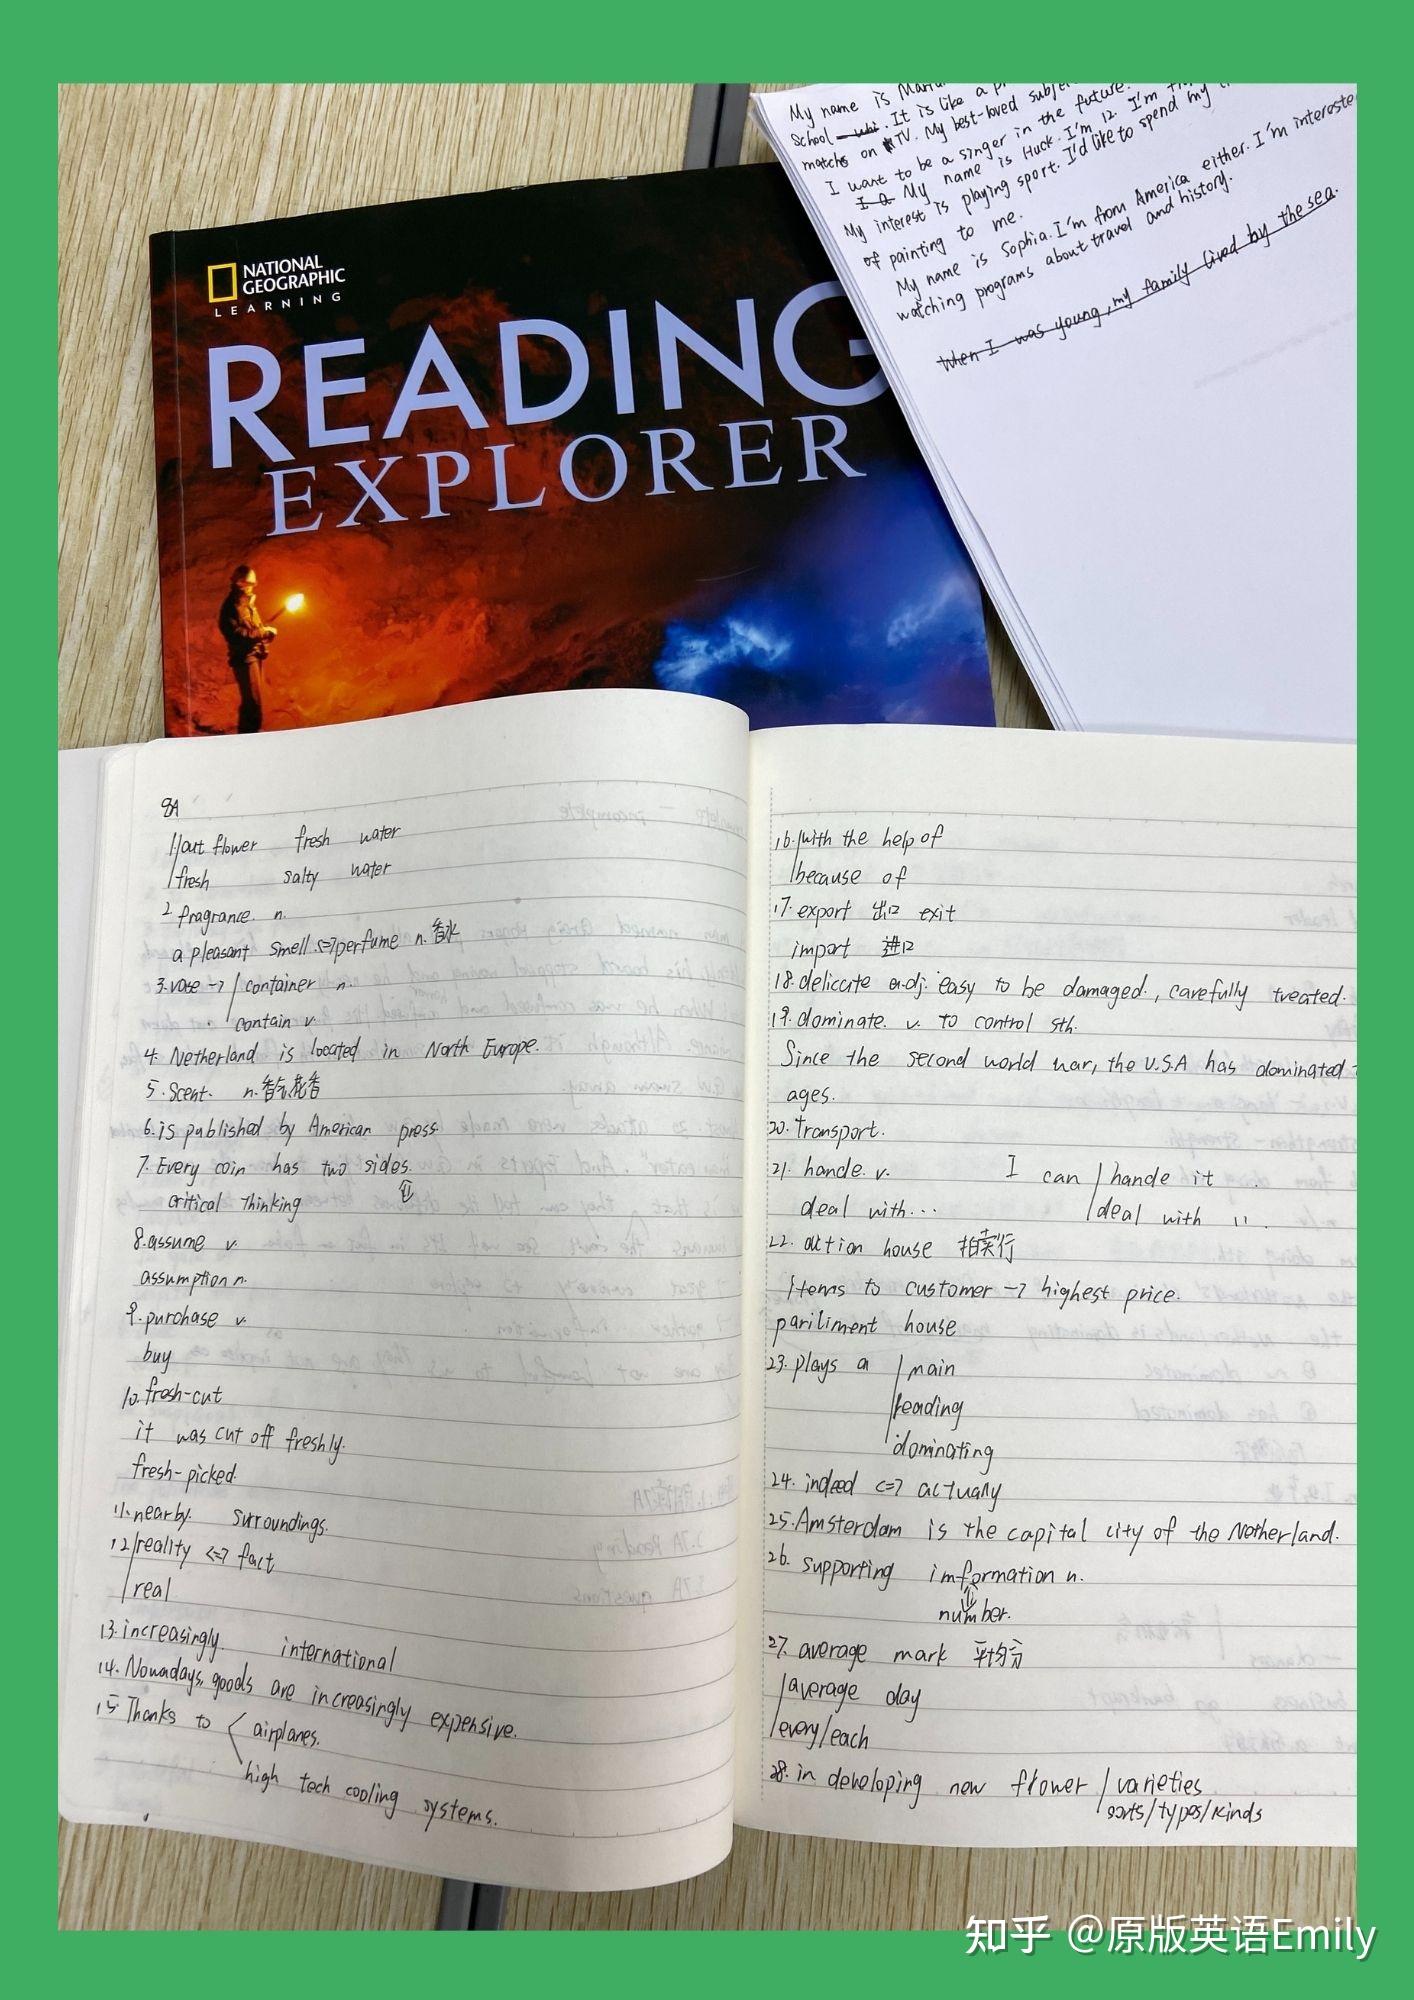 NATIONAL
GEOGRAPHIC
LEARNING
READING
EXPLORER
My name is
school whi. It is like a
match on TV. My best-loved subje
I want to be a singer in the future.
I a My name is Huck. I'm 12. I'm
My interest is playing sport. I'd like to spend my
of painting to me.
My name is Sophia. I'm from America either. I'm intereste
watching programs about travel and history.
When I was young, my family lived by the sea.
8A
1. cut flower fresh water
fresh salty water
2 fragrance. n.
a pleasant smell. <=> perfume n. 香水
3. vase -> container n.
contain v.
4. Netherland is located in North Europe.
5. Scent. n. 香气 花香
6. is published by American press.
7. Every coin has two sides.
critical thinking
8. assume v.
assumption n.
9. purchase v.
buy
10. fresh-cut
it was cut off freshly.
fresh-picked.
11. nearby. surroundings.
12 reality <=> fact
real
13. increasingly. international
14. Nowadays, goods are increasingly expensive.
15. Thanks to airplanes.
high tech cooling systems.
16. with the help of
because of
17. export 出口 exit
import 进口
18. delicate adj. easy to be damaged., carefully treated.
19. dominate. v. to control sth.
Since the second world war, the U.S.A has dominated
ages.
20. transport.
21. hande. v. I can hande it
deal with... deal with 11.
22. aution house 拍卖行
Items to customer -> highest price.
pariliment house
23. plays a main
leading
dominating
24. indeed <=> actually
25. Amsterdam is the capital city of the Netherland.
26. supporting imformation n.
number.
27. average mark 平均分
average day
every/each
28. in developing new flower varieties
sorts/types/kinds
知乎 @原版英语Emily